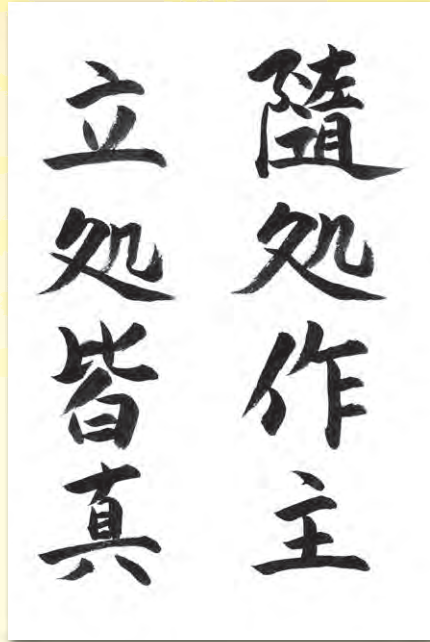 隨処作主
立処皆真